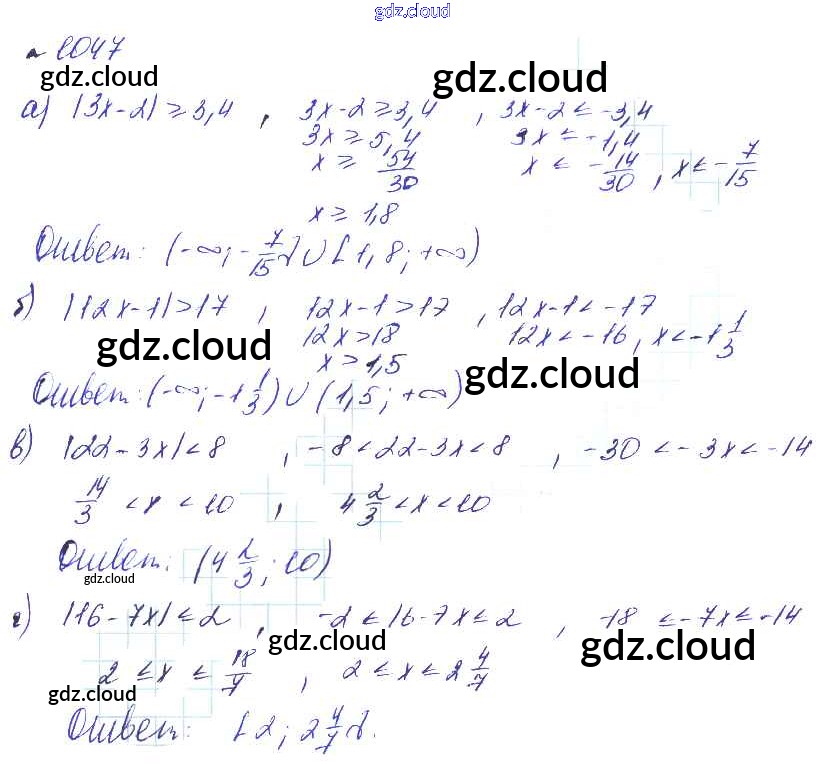 gdz.cloud
№ 1047
gdz.cloud gdz.cloud
а) |3x-2| ≥ 3,4 , 3x-2 ≥ 3,4 , 3x-2 ≤ -3,4
3x ≥ 5,4 3x ≤ -1,4
x ≥ 54/30 x ≤ -14/30 , x ≤ -7/15
x ≥ 1,8
Ответ: (-∞; -7/15] ∪ [1,8; +∞)
б) |12x-1| > 17 , 12x-1 > 17 , 12x-1 < -17
12x > 18 12x < -16, x < -1 1/3
gdz.cloud x > 1,5 gdz.cloud
Ответ: (-∞; -1 1/3) ∪ (1,5; +∞)
в) |22-3x| < 8 , -8 < 22-3x < 8 , -30 < -3x < -14
14/3 < x < 10 , 4 2/3 < x < 10
Ответ: (4 2/3; 10)
gdz.cloud
г) |16-7x| ≤ 2 , -2 ≤ 16-7x ≤ 2 , -18 ≤ -7x ≤ -14
gdz.cloud gdz.cloud
2 ≤ x ≤ 18/7 , 2 ≤ x ≤ 2 4/7
gdz.cloud
Ответ: [2; 2 4/7].